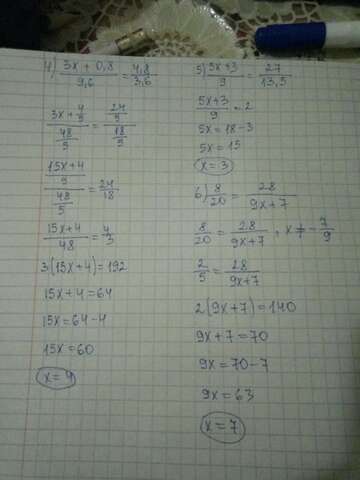 4) (3x + 0,8)/9,6 = 4,8/3,6
(3x + 4/5)/(48/5) = (24/5)/(18/5)
((15x+4)/5)/(48/5) = 24/18
(15x+4)/48 = 4/3
3(15x+4)=192
15x+4=64
15x=64-4
15x=60
x=4
5) (5x+3)/9 = 27/13,5
(5x+3)/9 = 2
5x=18-3
5x=15
x=3
6) 8/20 = 28/(9x+7)
8/20 = 28/(9x+7), x≠-7/9
2/5 = 28/(9x+7)
2(9x+7)=140
9x+7=70
9x=70-7
9x=63
x=7